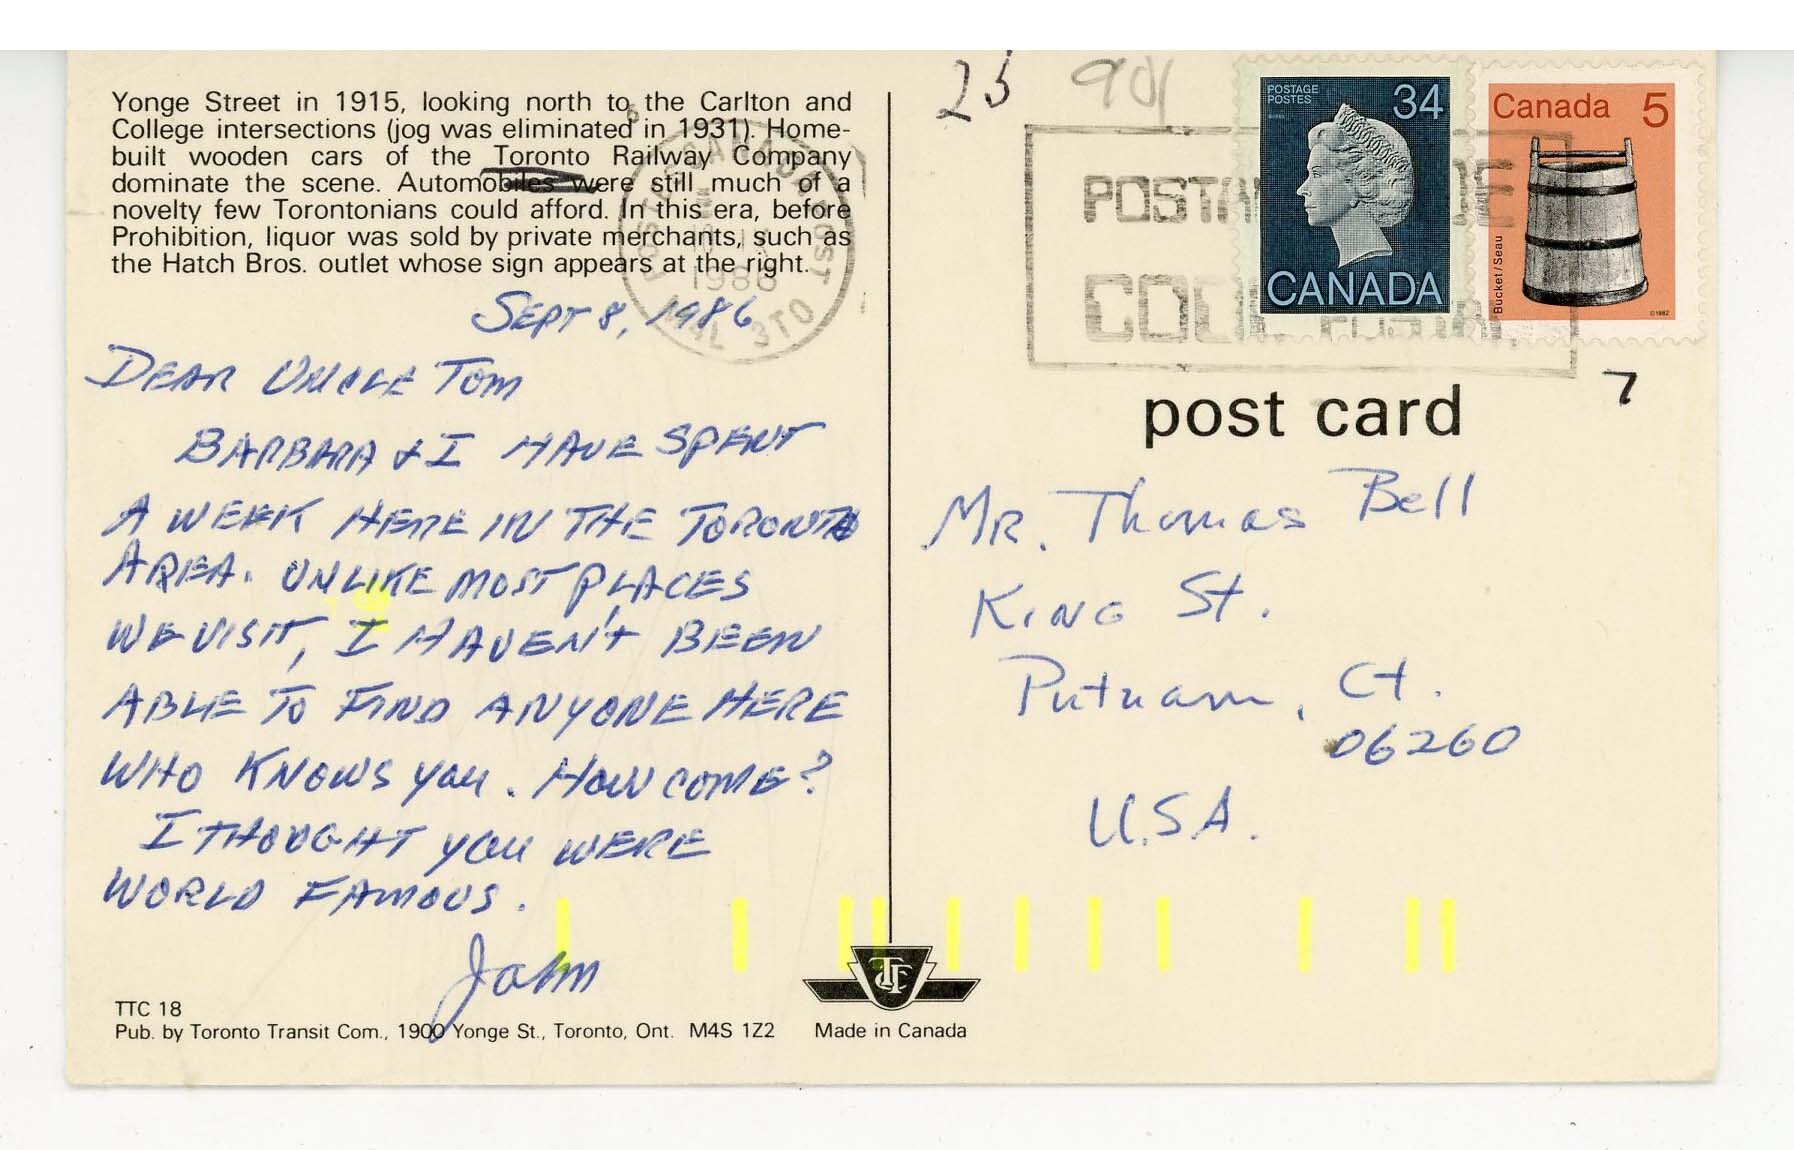 Yonge Street in 1915, looking north to the Carlton and
College intersections (jog was eliminated in 1931). Home-
built wooden cars of the Toronto Railway Company
dominate the scene. Automobiles were still much of a
novelty few Torontonians could afford. In this era, before
Prohibition, liquor was sold by private merchants, such as
the Hatch Bros. outlet whose sign appears at the right.
SEPT 8, 1986
DEAR UNCLE TOM
BARBARA & I HAVE SPENT
A WEEK HERE IN THE TORONTO
AREA. UNLIKE MOST PLACES
WE VISIT, I HAVEN'T BEEN
ABLE TO FIND ANYONE HERE
WHO KNOWS YOU. HOW COME?
I THOUGHT YOU WERE
WORLD FAMOUS.
John
TTC 18
Pub. by Toronto Transit Com., 1900 Yonge St., Toronto, Ont. M4S 1Z2
TTC
Made in Canada
CANADA POST
1986
POSTAL
23
901
POSTAGE
POSTES
34
CANADA
Canada 5
Bucket/Seau
©1982
7
post card
MR. Thomas Bell
KING St.
Putnam, Ct.
06260
U.S.A.